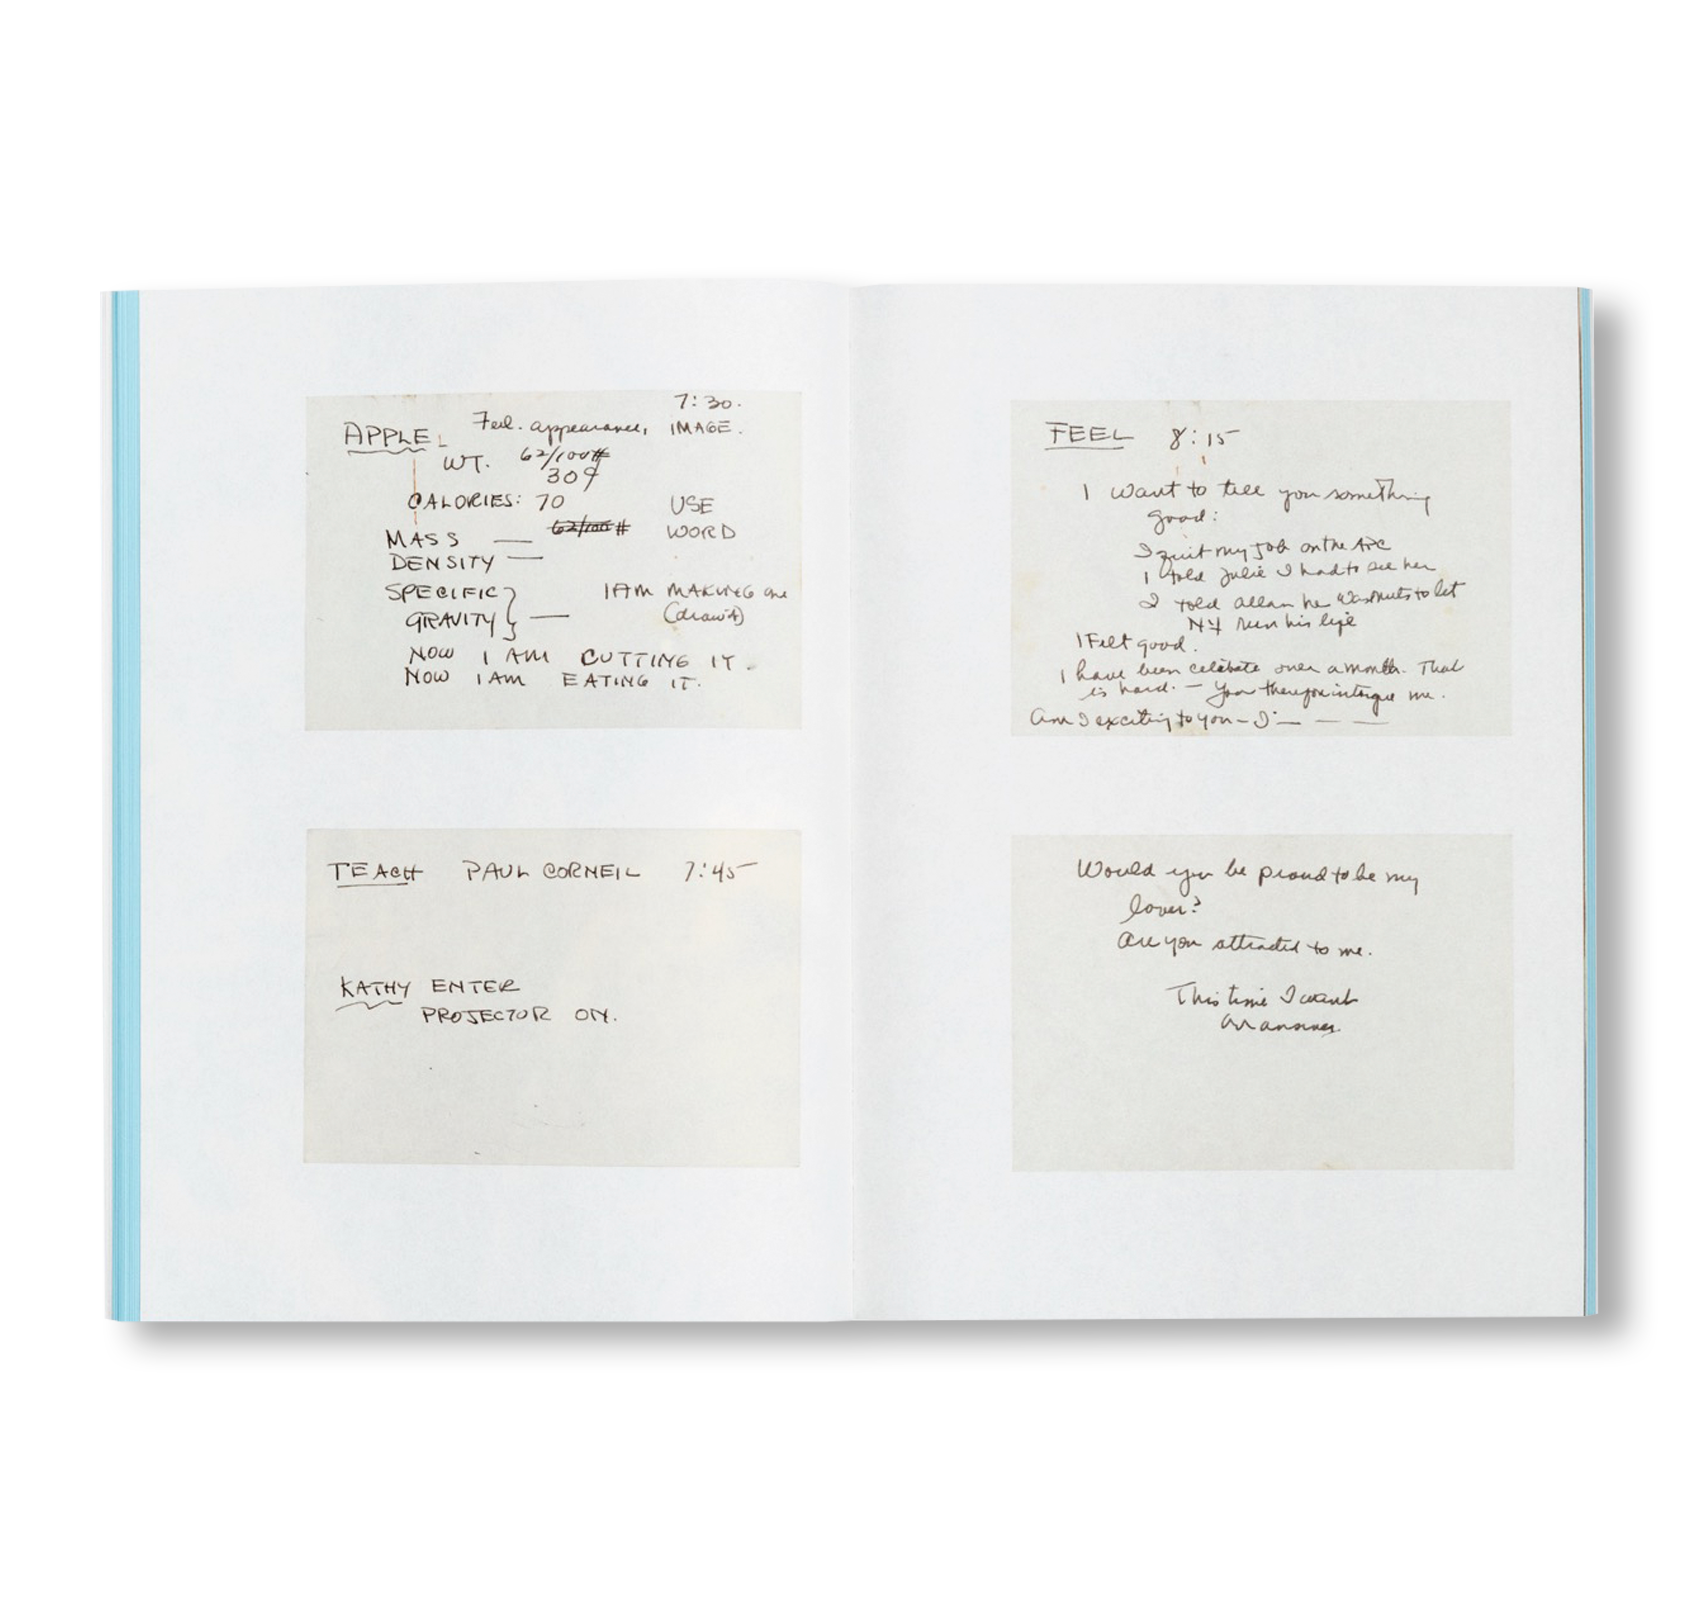 7:30.
APPLE Feel. appearance, IMAGE.
WT. 62/100#
30¢
CALORIES: 70 USE
62/100# WORD
MASS —
DENSITY —
SPECIFIC } I AM MAKING one
GRAVITY } — (draw it)
NOW I AM CUTTING IT.
NOW I AM EATING IT.
TEACH PAUL CORNEIL 7:45
KATHY ENTER
PROJECTOR ON.
FEEL 8:15
I want to tell you something
good:
I quit my job on the ARC
I told Julie I had to see her
I told Allan he was nuts to let
NY run his life
I Felt good.
I have been celebate over a month. That
is hard. — You therefore intrigue me.
Am I exciting to you — I — — — —
Would you be proud to be my
lover?
Are you attracted to me.
This time I want
an answer.